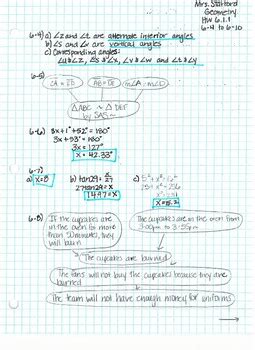 Mrs. Stafford
Geometry
HW 6.1.1
6-4 to 6-10
6-4) a) ∠z and ∠t are alternate interior angles
b) ∠s and are vertical angles
c) Corresponding angles:
6-5)
∠A = ∠D
m∠A = m∠D
△ABC ~ △DEF
by SAS ~
6-6) 3x+1°+52° = 180°
3x+53° = 180°
3x = 127°
x = 42.33°
6-7)
a) x=8
b) tan29 = x/27
27tan29 = x
14.97 = x
6-8) If the cupcakes are
in the oven for more
than 50 minutes, they
will burn
The cupcakes are in the oven from
3:00pm to 3:55pm
The cupcakes are burned
The fans will not buy the cupcakes because they are
burned
The team will not have enough money for uniforms